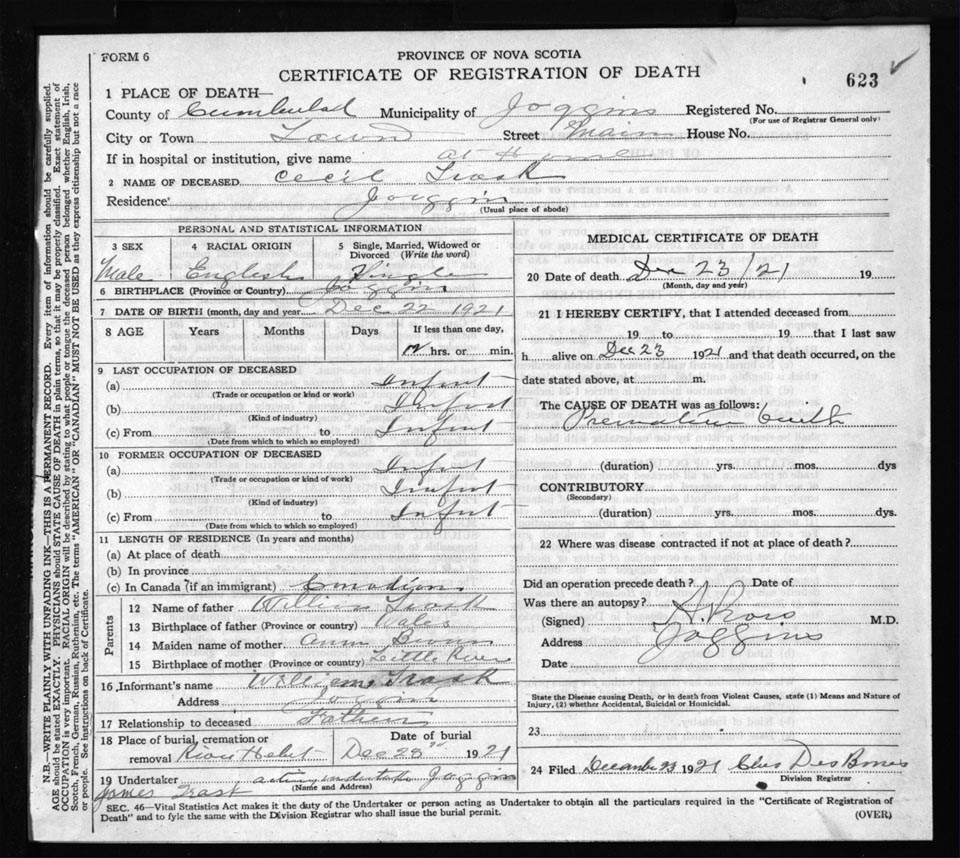 FORM 6
PROVINCE OF NOVA SCOTIA
CERTIFICATE OF REGISTRATION OF DEATH
623 ✓
1 PLACE OF DEATH—
County of Cumberland Municipality of Joggins Registered No.
(For use of Registrar General only)
City or Town Town Street Main House No.
If in hospital or institution, give name at Home
2 NAME OF DECEASED Cecil Trask
Residence Joggin
(Usual place of abode)
PERSONAL AND STATISTICAL INFORMATION
3 SEX 4 RACIAL ORIGIN 5 Single, Married, Widowed or Divorced (Write the word)
Male English Single
6 BIRTHPLACE (Province or Country) Joggin
7 DATE OF BIRTH (month, day and year) Dec 22 1921
8 AGE Years Months Days If less than one day,
12 hrs. or min.
9 LAST OCCUPATION OF DECEASED
(a) Infant
(Trade or occupation or kind or work)
(b) Infant
(Kind of industry)
(c) From to Infant
(Date from which to which so employed)
10 FORMER OCCUPATION OF DECEASED
(a) Infant
(Trade or occupation or kind or work)
(b) Infant
(Kind of industry)
(c) From to Infant
(Date from which to which so employed)
11 LENGTH OF RESIDENCE (In years and months)
(a) At place of death
(b) In province
(c) In Canada (if an immigrant) Canadian
Parents
12 Name of father William Trask
13 Birthplace of father (Province or country) Wales
14 Maiden name of mother Ann
15 Birthplace of mother (Province or country) Little River
16 Informant's name William Trask
Address Joggin
17 Relationship to deceased Father
18 Place of burial, cremation or removal River Hebert Date of burial Dec 23rd 1921
19 Undertaker acting undertaker Joggin
(Name and Address)
James Trask
MEDICAL CERTIFICATE OF DEATH
20 Date of death Dec 23/21 19
(Month, day and year)
21 I HEREBY CERTIFY, that I attended deceased from
19 to 19 that I last saw
h alive on Dec 23 1921 and that death occurred, on the
date stated above, at m.
The CAUSE OF DEATH was as follows:
Premature birth
(duration) yrs. mos. dys
CONTRIBUTORY
(Secondary)
(duration) yrs. mos. dys.
22 Where was disease contracted if not at place of death?
Did an operation precede death? Date of
Was there an autopsy?
(Signed) M.D.
Address Joggins
Date
State the Disease causing Death, or in death from Violent Causes, state (1) Means and Nature of
Injury, (2) whether Accidental, Suicidal or Homicidal.
23
24 Filed December 23 1921 Chas Des Barres
Division Registrar
SEC. 46—Vital Statistics Act makes it the duty of the Undertaker or person acting as Undertaker to obtain all the particulars required in the "Certificate of Registration of
Death" and to fyle the same with the Division Registrar who shall issue the burial permit.
(OVER)
N.B.—WRITE PLAINLY WITH UNFADING INK—THIS IS A PERMANENT RECORD. Every item of information should be carefully supplied.
AGE should be stated EXACTLY. PHYSICIANS should STATE CAUSE OF DEATH in plain terms, so that it may be properly classified. Exact statement of
OCCUPATION is very important. RACIAL ORIGIN will be described by stating to what people or tongue the deceased person belonged whether English, Irish,
Scotch, French, German, Russian, Ruthenian, etc. The terms "AMERICAN" OR "CANADIAN" MUST NOT BE USED as they express citizenship but not a race
or people. See instructions on back of Certificate.